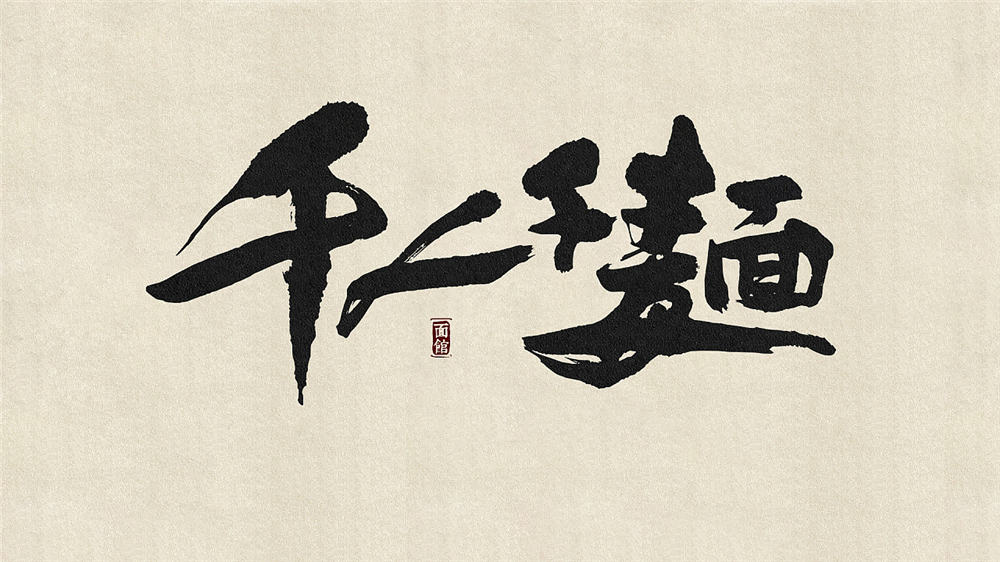 千人千麵
面館